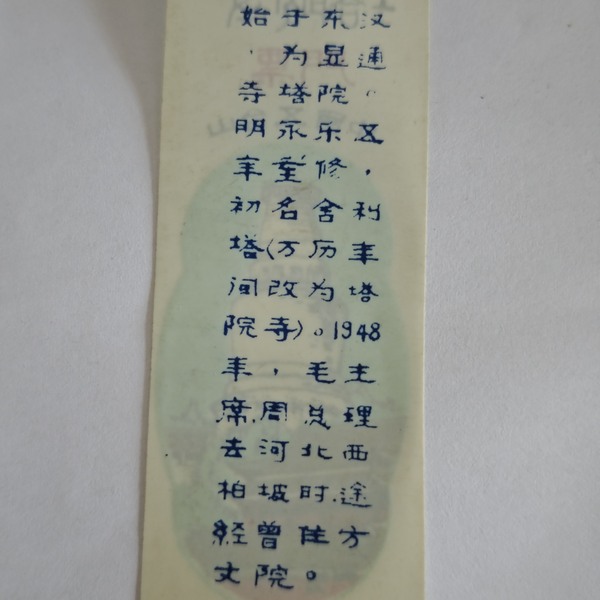 始于东汉
，为显通
寺塔院。
明永乐五
年重修，
初名舍利
塔（万历年
间改为塔
院寺）。1948
年，毛主
席、周总理
去河北西
柏坡时，途
经曾住方
丈院。